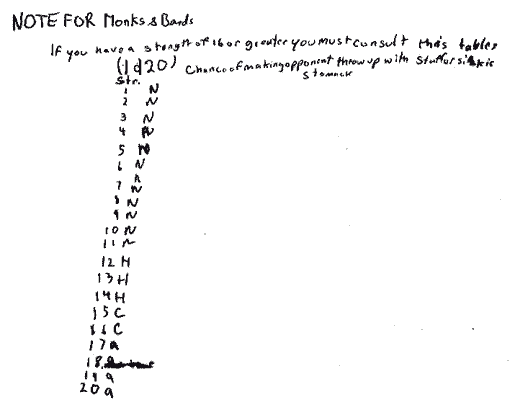 NOTE FOR Monks & Bards
If you have a strength of 16 or greater you must consult this tables
(1d20) Chance of making opponent throw up with stuff or sick is
stomack
Str.
1 N
2 N
3 N
4 N
5 N
6 N
7 N
8 N
9 N
10 N
11 N
12 H
13 H
14 H
15 C
16 C
17 a
18 a
19 a
20 a